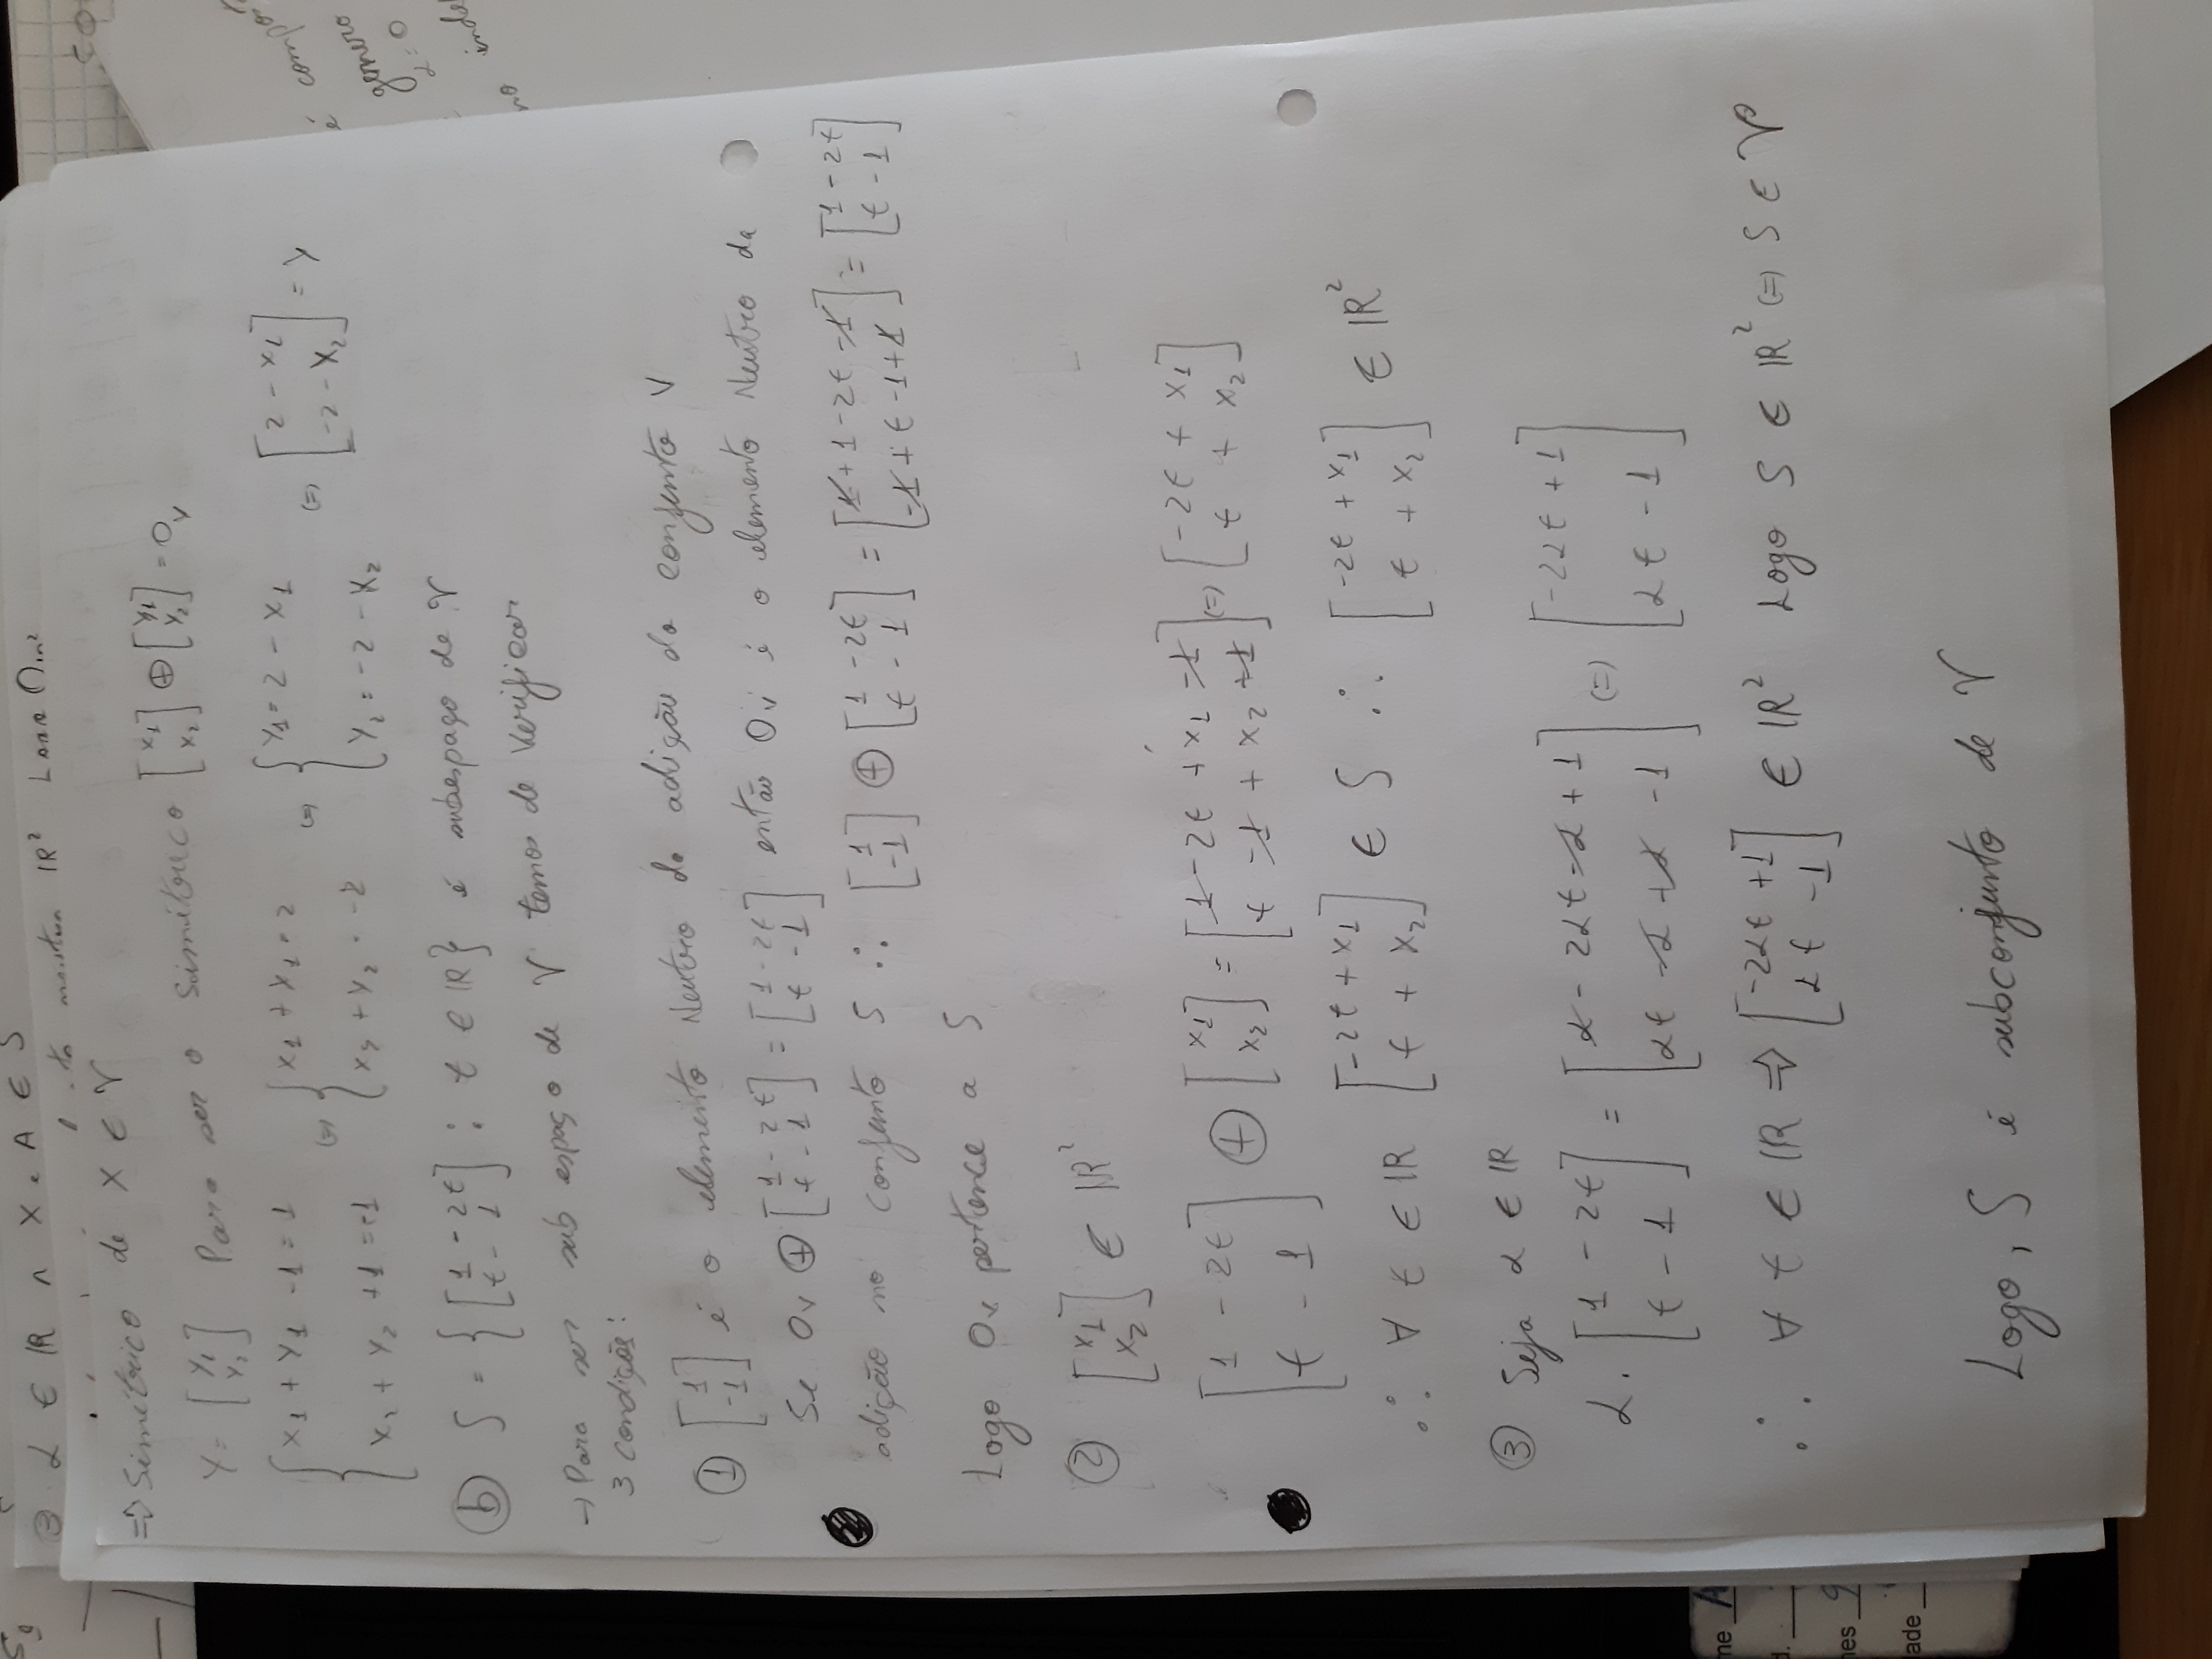 ③ α ∈ ℝ ∧ X ∈ S
ℝ²
⇒ Simétrico de X ∈ V
Y = [y1 y2] Para ser o simétrico [x1 x2] ⊕ [y1 y2] = 0v
{x1 + y1 - 1 = 1 (=) {x1 + y1 = 2 (=) {y1 = 2 - x1 (=) [2 - x1
{x2 + y2 + 1 = -1 {x2 + y2 = -2 {y2 = -2 - x2 -2 - x2] = y
ⓑ S = {[1 - 2t t - 1] : t ∈ ℝ} é subespaço de V
→ Para ser sub espaço de V temos de verificar
3 condições:
① [1 -1] é o elemento Neutro da adição do conjunto V
Se 0v ⊕ [1 - 2t t - 1] = [1 - 2t t - 1] então 0v é o elemento Neutro da
adição no conjunto S ∴ [1 -1] ⊕ [1 - 2t t - 1] = [1 + 1 - 2t - 1 -1 + t - 1 + 1] = [1 - 2t t - 1]
Logo 0v pertence a S
② [x1 x2] ∈ ℝ²
[1 - 2t t - 1] ⊕ [x1 x2] = [1 - 2t + x1 - 1 t - 1 + x2 + 1] (=) [-2t + x1 t + x2]
∴ ∀ t ∈ ℝ [-2t + x1 t + x2] ∈ S ∴ [-2t + x1 t + x2] ∈ ℝ²
③ Seja α ∈ ℝ
α . [1 - 2t t - 1] = [α - 2αt - α + 1 αt - α + α - 1] (=) [-2αt + 1 αt - 1]
∴ ∀ t ∈ ℝ ⇒ [-2αt + 1 αt - 1] ∈ ℝ² Logo S ∈ ℝ² (=) S ∈ V
Logo, S é subconjunto de V
é
genero
α = 0
me
nes 9
ade